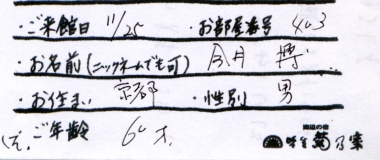 ・ご来館日 11/25 ・お部屋番号 403
・お名前(ニックネームでも可) 今月 博
・お住まい 京都 ・性別 男
ご年齢 60才.
海辺の宿